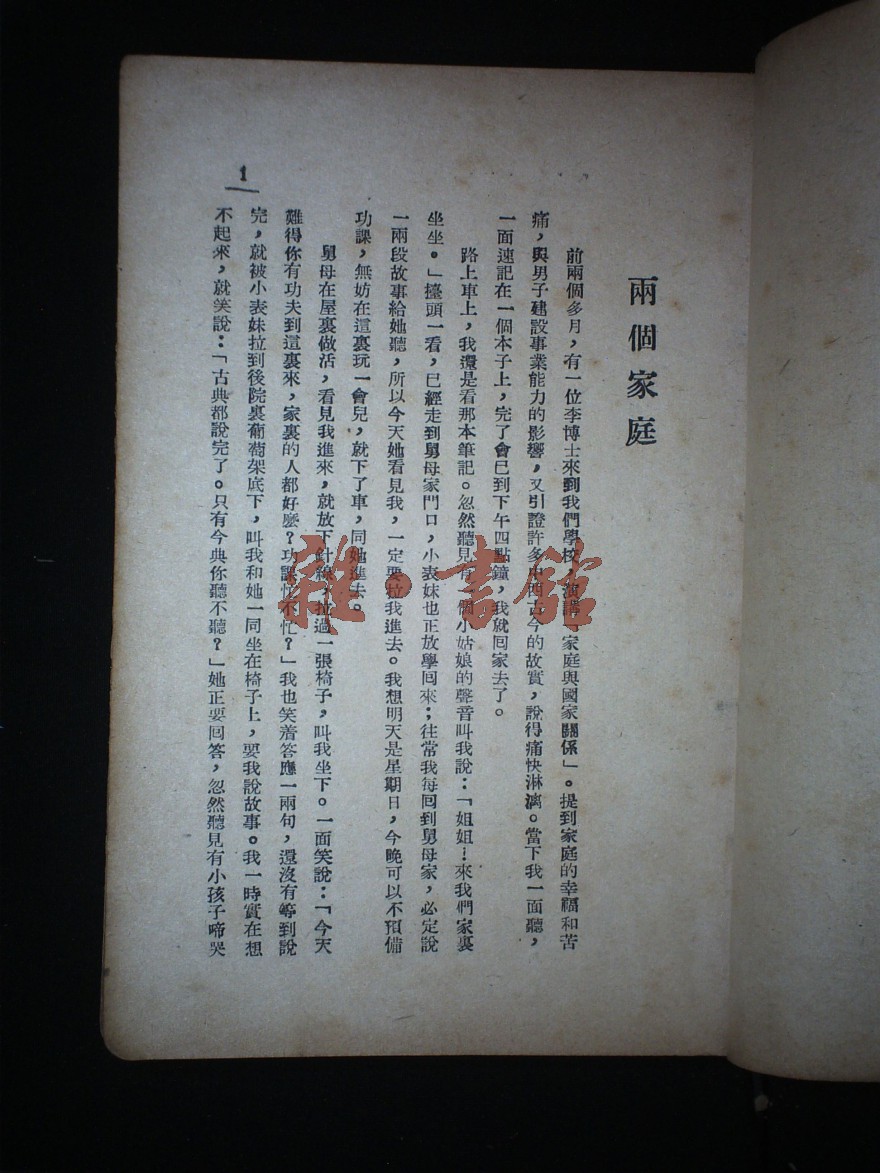 兩個家庭
前兩個多月，有一位李博士來到我們學校，演講「家庭與國家關係」。提到家庭的幸福和苦
痛，與男子建設事業能力的影響，又引證許多中西古今的故實，說得痛快淋漓。當下我一面聽，
一面速記在一個本子上，完了會已到下午四點鐘，我就回家去了。
路上車上，我還是看那本筆記。忽然聽見有一個小姑娘的聲音叫我說：「姐姐…來我們家裏
坐坐。」擡頭一看，已經走到舅母家門口，小表妹也正放學回來；往常我每回到舅母家，必定說
一兩段故事給她聽，所以今天她看見我，一定要拉我進去。我想明天是星期日，今晚可以不預備
功課，無妨在這裏玩一會兒，就下了車，同她進去。
舅母在屋裏做活，看見我進來，就放下針線，拉過一張椅子，叫我坐下。一面笑說：「今天
難得你有功夫到這裏來，家裏的人都好麼？功課忙不忙？」我也笑着答應一兩句，還沒有等到說
完，就被小表妹拉到後院裏葡萄架底下，叫我和她一同坐在椅子上，要我說故事。我一時實在想
不起來，就笑說：「古典都說完了。只有今典你聽不聽？」她正要回答，忽然聽見有小孩子啼哭
1
雜·書館